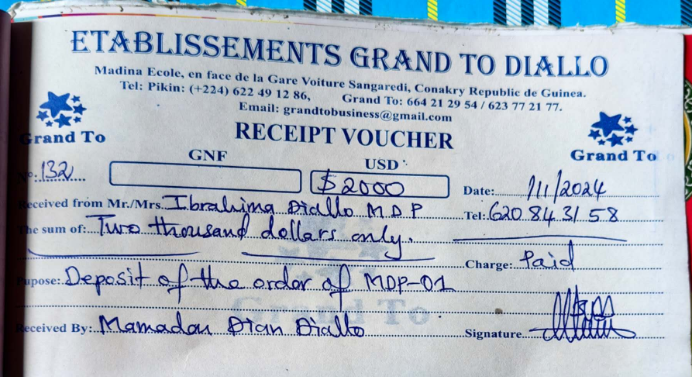 ETABLISSEMENTS GRAND TO DIALLO
Madina Ecole, en face de la Gare Voiture Sangaredi, Conakry Republic de Guinea.
Tel: Pikin: (+224) 622 49 12 86, Grand To: 664 21 29 54 / 623 77 21 77.
Email: grandtobusiness@gmail.com
Grand To RECEIPT VOUCHER Grand To
GNF USD
132 $2000 Date: /11/2024
Received from Mr./Mrs. Ibrahima Diallo MDP Tel: 620 84 31 58
The sum of: Two thousand dollars only.
Charge: Paid
upose: Deposit of the order of MDP-01
Grand To
Received By: Mamadou Dian Diallo Signature